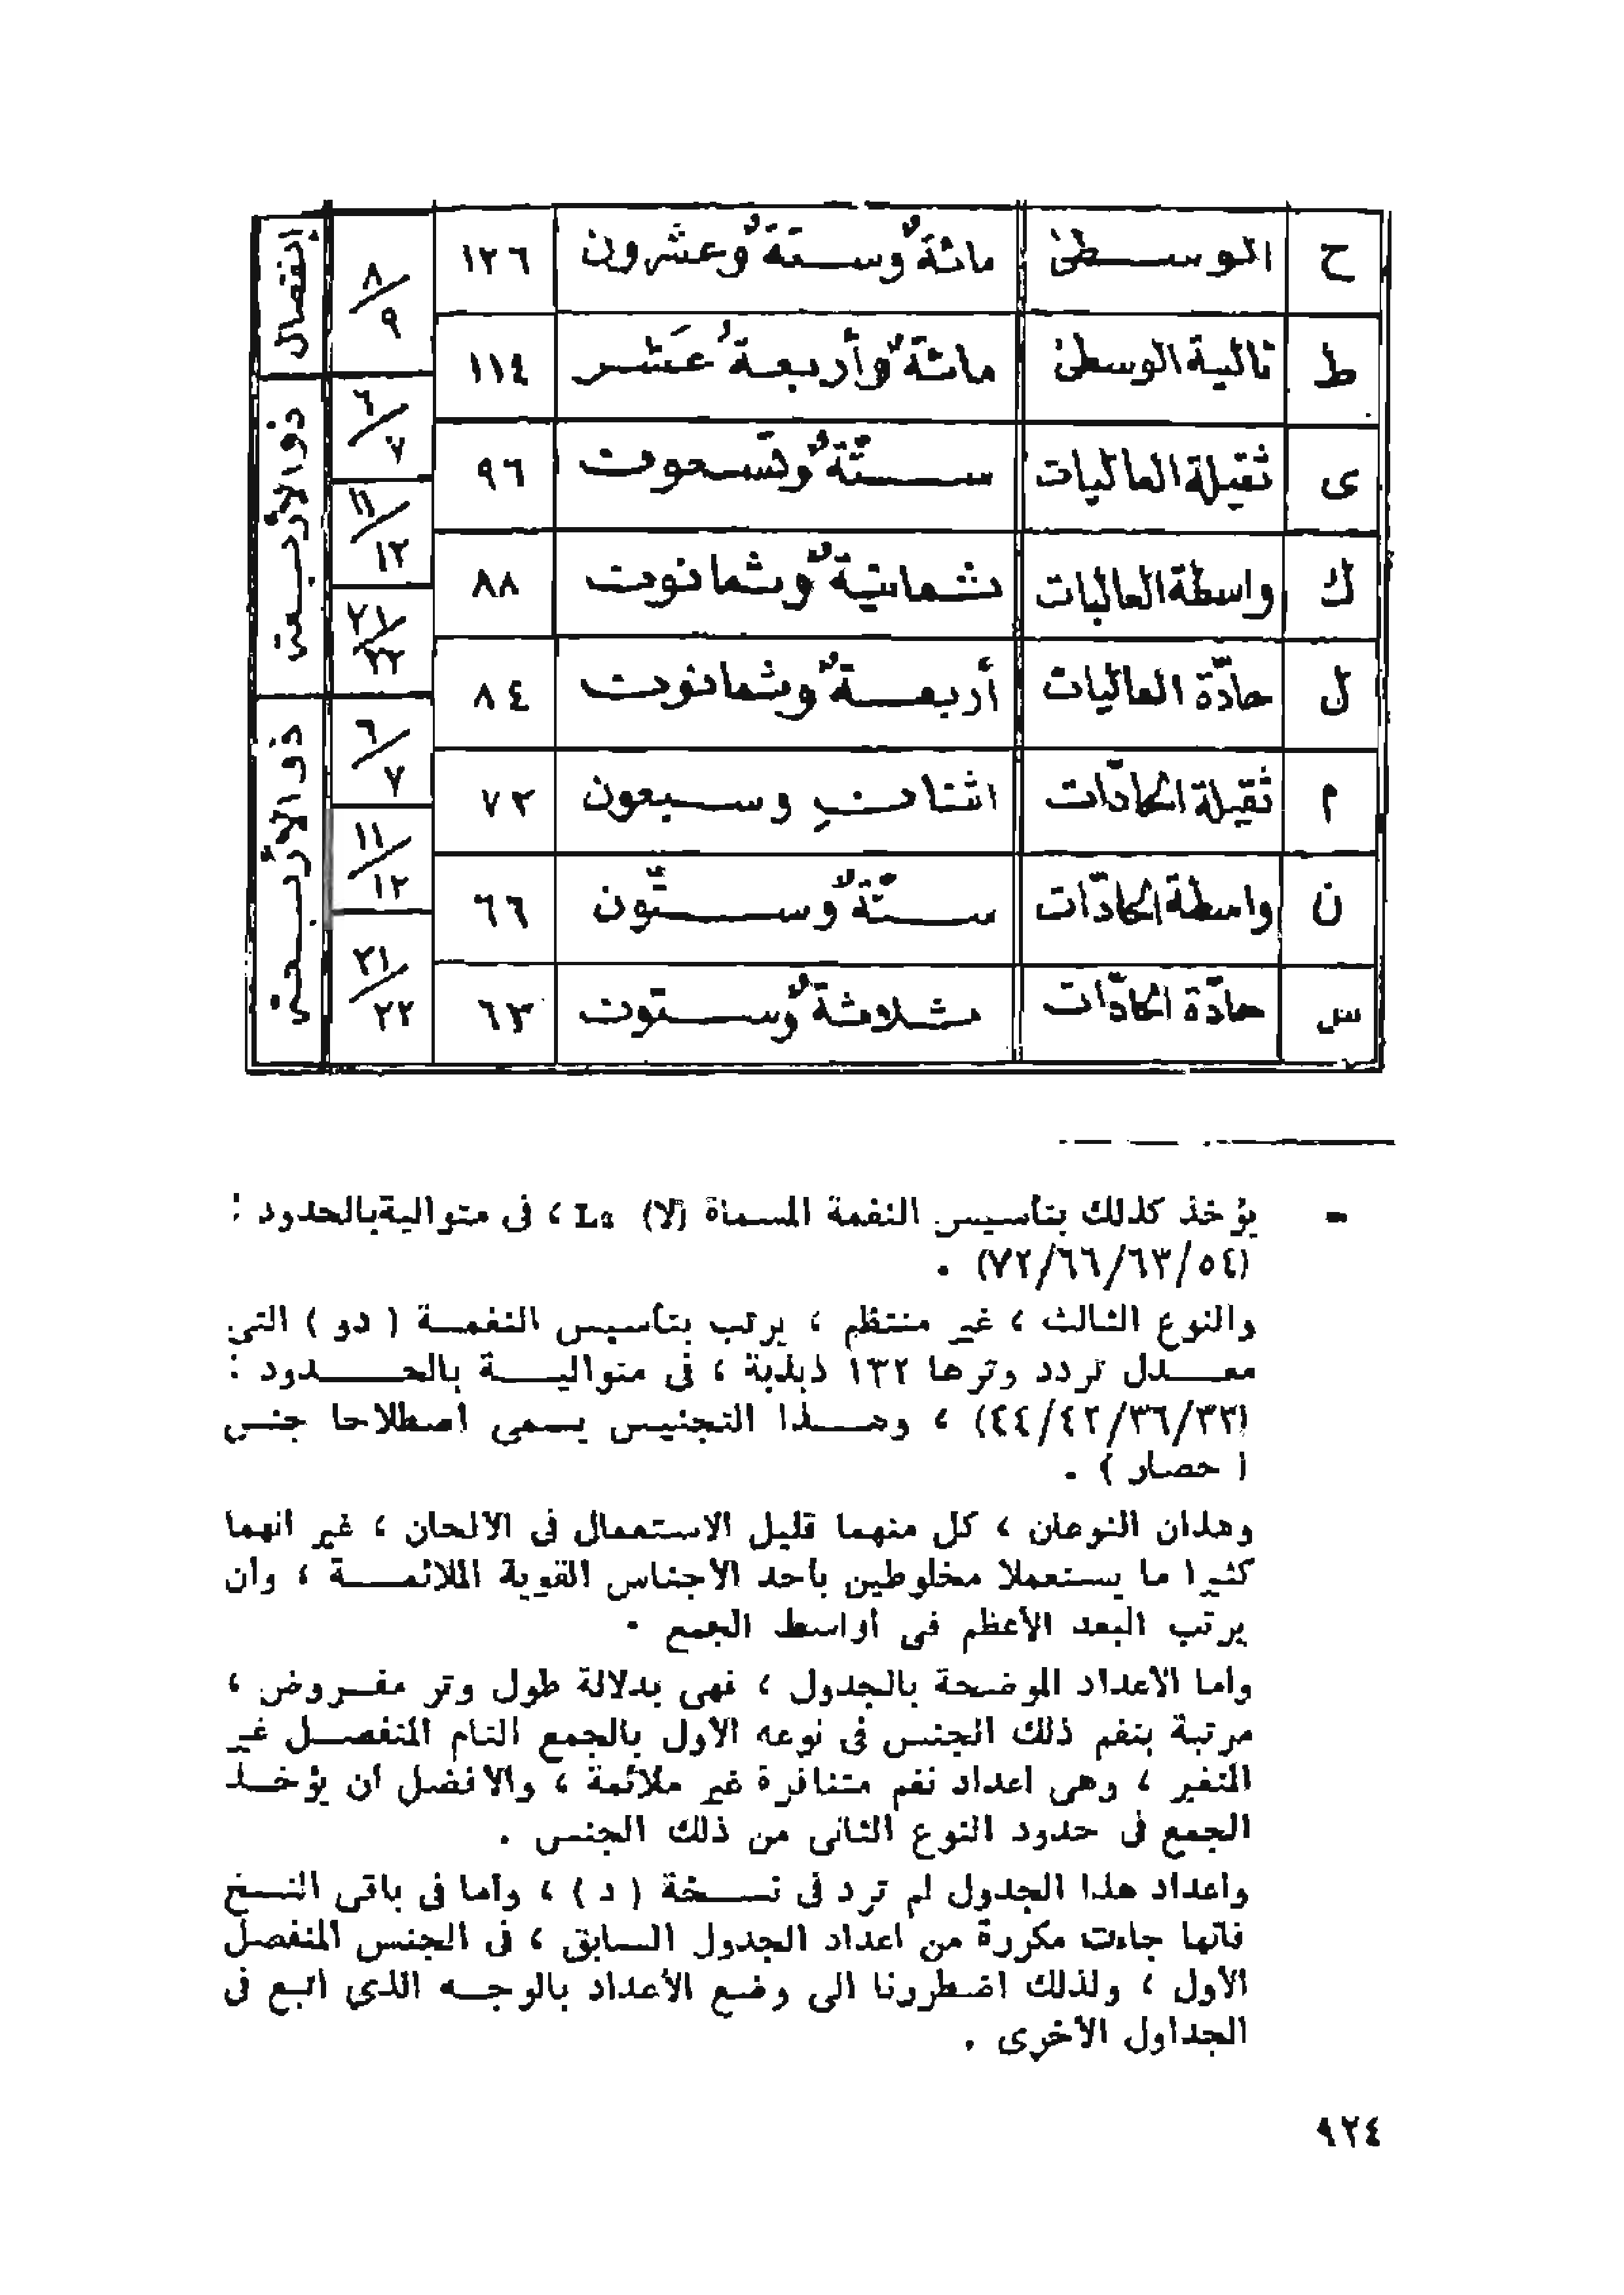 ح الوسطىٰ مائةٌ وستةٌ وعشرون ١٢٦ ٨/٩ إنفصال
ط تالية الوسطىٰ مائةٌ وأربعةُ عَشر ١١٤
ى ثقيلة العاليات ستّةٌ وتسعون ٩٦ ٦/٧ ذو الأربعة
ك واسطة العاليات ثمانيةٌ وثمانون ٨٨ ١١/١٢
ل حادّة العاليات أربعةٌ وثمانون ٨٤ ٢١/٢٢
م ثقيلة الحادّات اثنانِ وسبعون ٧٢ ٦/٧ ذو الأربعة
ن واسطة الحادّات ستّةٌ وستّون ٦٦ ١١/١٢
س حادّة الحادّات ثلاثةٌ وستون ٦٣ ٢١/٢٢
= يؤخذ كذلك بتأسيس النغمة المسماة (لا) La ، فى متوالية بالحدود :
(٧٢/٦٦/٦٣/٥٤) .
والنوع الثالث ، غير منتظم ، يرتب بتأسيس النغمة ( دو ) التى
معدل تردد وترها ١٣٢ ذبذبة ، فى متوالية بالحدود :
(٤٤/٤٢/٣٦/٣٣) ، وهذا التجنيس يسمى اصطلاحا جنس
( حصار ) .
وهذان النوعان ، كل منهما قليل الاستعمال فى الالحان ، غير انهما
كثيرا ما يستعملا مخلوطين بأحد الأجناس القوية الملائمة ، وأن
يرتب البعد الأعظم فى أواسط الجمع .
وأما الأعداد الموضحة بالجدول ، فهى بدلالة طول وتر مفروض ،
مرتبة بنغم ذلك الجنس فى نوعه الأول بالجمع التام المنفصل غير
المتغير ، وهى أعداد نغم متنافرة غير ملائمة ، والأفضل أن يؤخذ
الجمع فى حدود النوع الثانى من ذلك الجنس .
وأعداد هذا الجدول لم ترد فى نسخة ( د ) ، وأما فى باقى النسخ
فانها جاءت مكررة من أعداد الجدول السابق ، فى الجنس المنفصل
الأول ، ولذلك اضطررنا الى وضع الأعداد بالوجه الذى اتبع فى
الجداول الأخرى .
٩٢٤